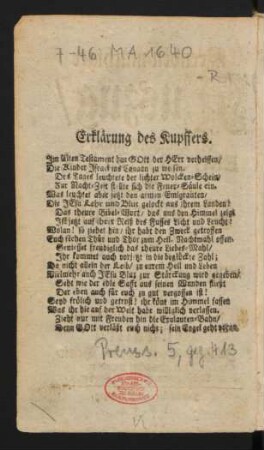 7-46 MA 1640
Erklärung des Kupffers.
Im Alten Testament hat GOtt der HErr verheissen/
Die Kinder Israel ins Canaan zu weisen.
Des Tages leuchtete der lichter Wolcken-Schein/
Zur Nacht-Zeit stellte sich die Feuer-Säule ein.
Was leuchtet aber jetzt den armen Emigranten/
Die JEsu Liebe und Blut gelockt aus ihren Landen?
Das theure Bibel-Wort/ das uns den Himmel zeigt
Ist jetzt auf ihrer Reiß des Fusses Licht und Leucht:
Wolan! so ziehet hin/ ihr habt den Zweck getroffen
Euch stehen Thür und Thor zum Heil. Nachtmahl offen.
Geniesset freudiglich das theure Liebes-Mahl/
Ihr kommt auch vor jetzt in die
Da nicht allein der Leib/ zu eurem Heil und Leben
Vielmehr auch JEsu Blut zur Stärckung wird gegeben/
Seht wie der edle Safft aus seinen Wunden fließt
Der eben auch für euch zu gut vergossen ist!
Seyd frölich und getrost! ihr könt im Himmel fassen
Was ihr hie auf der Welt habt williglich verlassen.
Zieht nur mit Freuden hin die Exulanten-Bahn/
Denn GOtt verläßt euch nicht; sein Engel geht voran.
Preuss. 5, 413